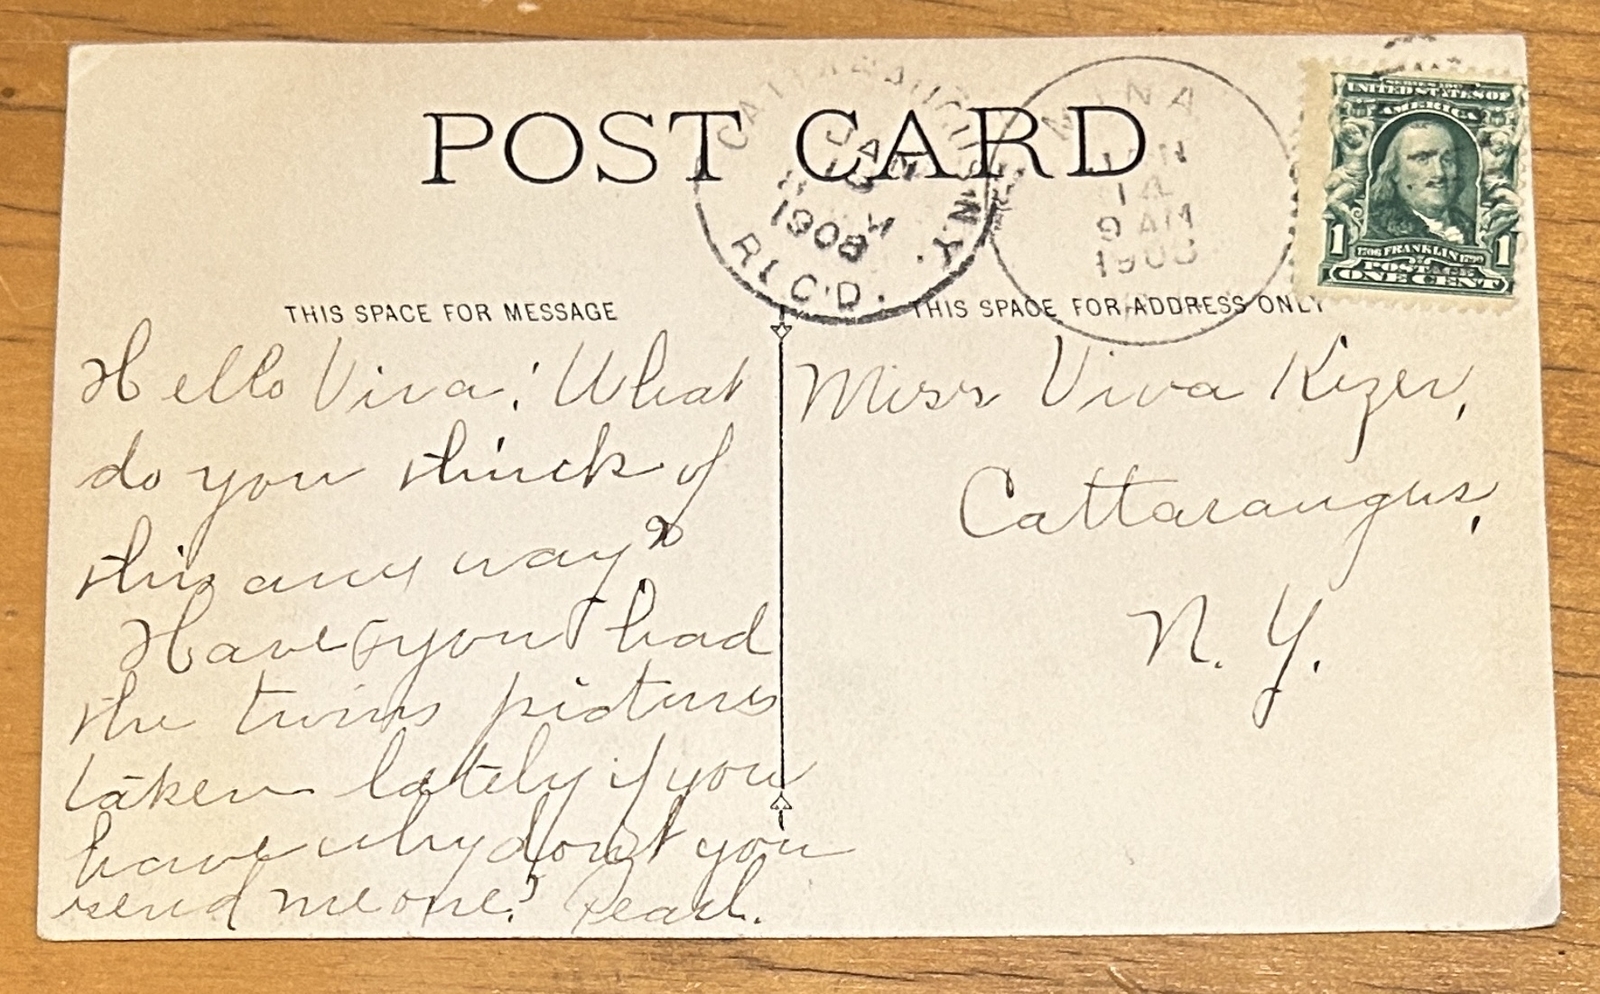 POST CARD
CATTARAUGUS N.Y.
JAN
1908
REC'D.
MINA
JAN
14
9 AM
1908
UNITED STATES OF
AMERICA
1706 FRANKLIN 1790
POSTAGE
1 1
ONE CENT
THIS SPACE FOR MESSAGE
THIS SPACE FOR ADDRESS ONLY
Hello Viva; What
do you think of
this any way?
Have you had
the twins pictures
taken lately if you
have why dont you
send me one? Pearl.
Miss Viva Kizer,
Cattaraugus,
N. Y.